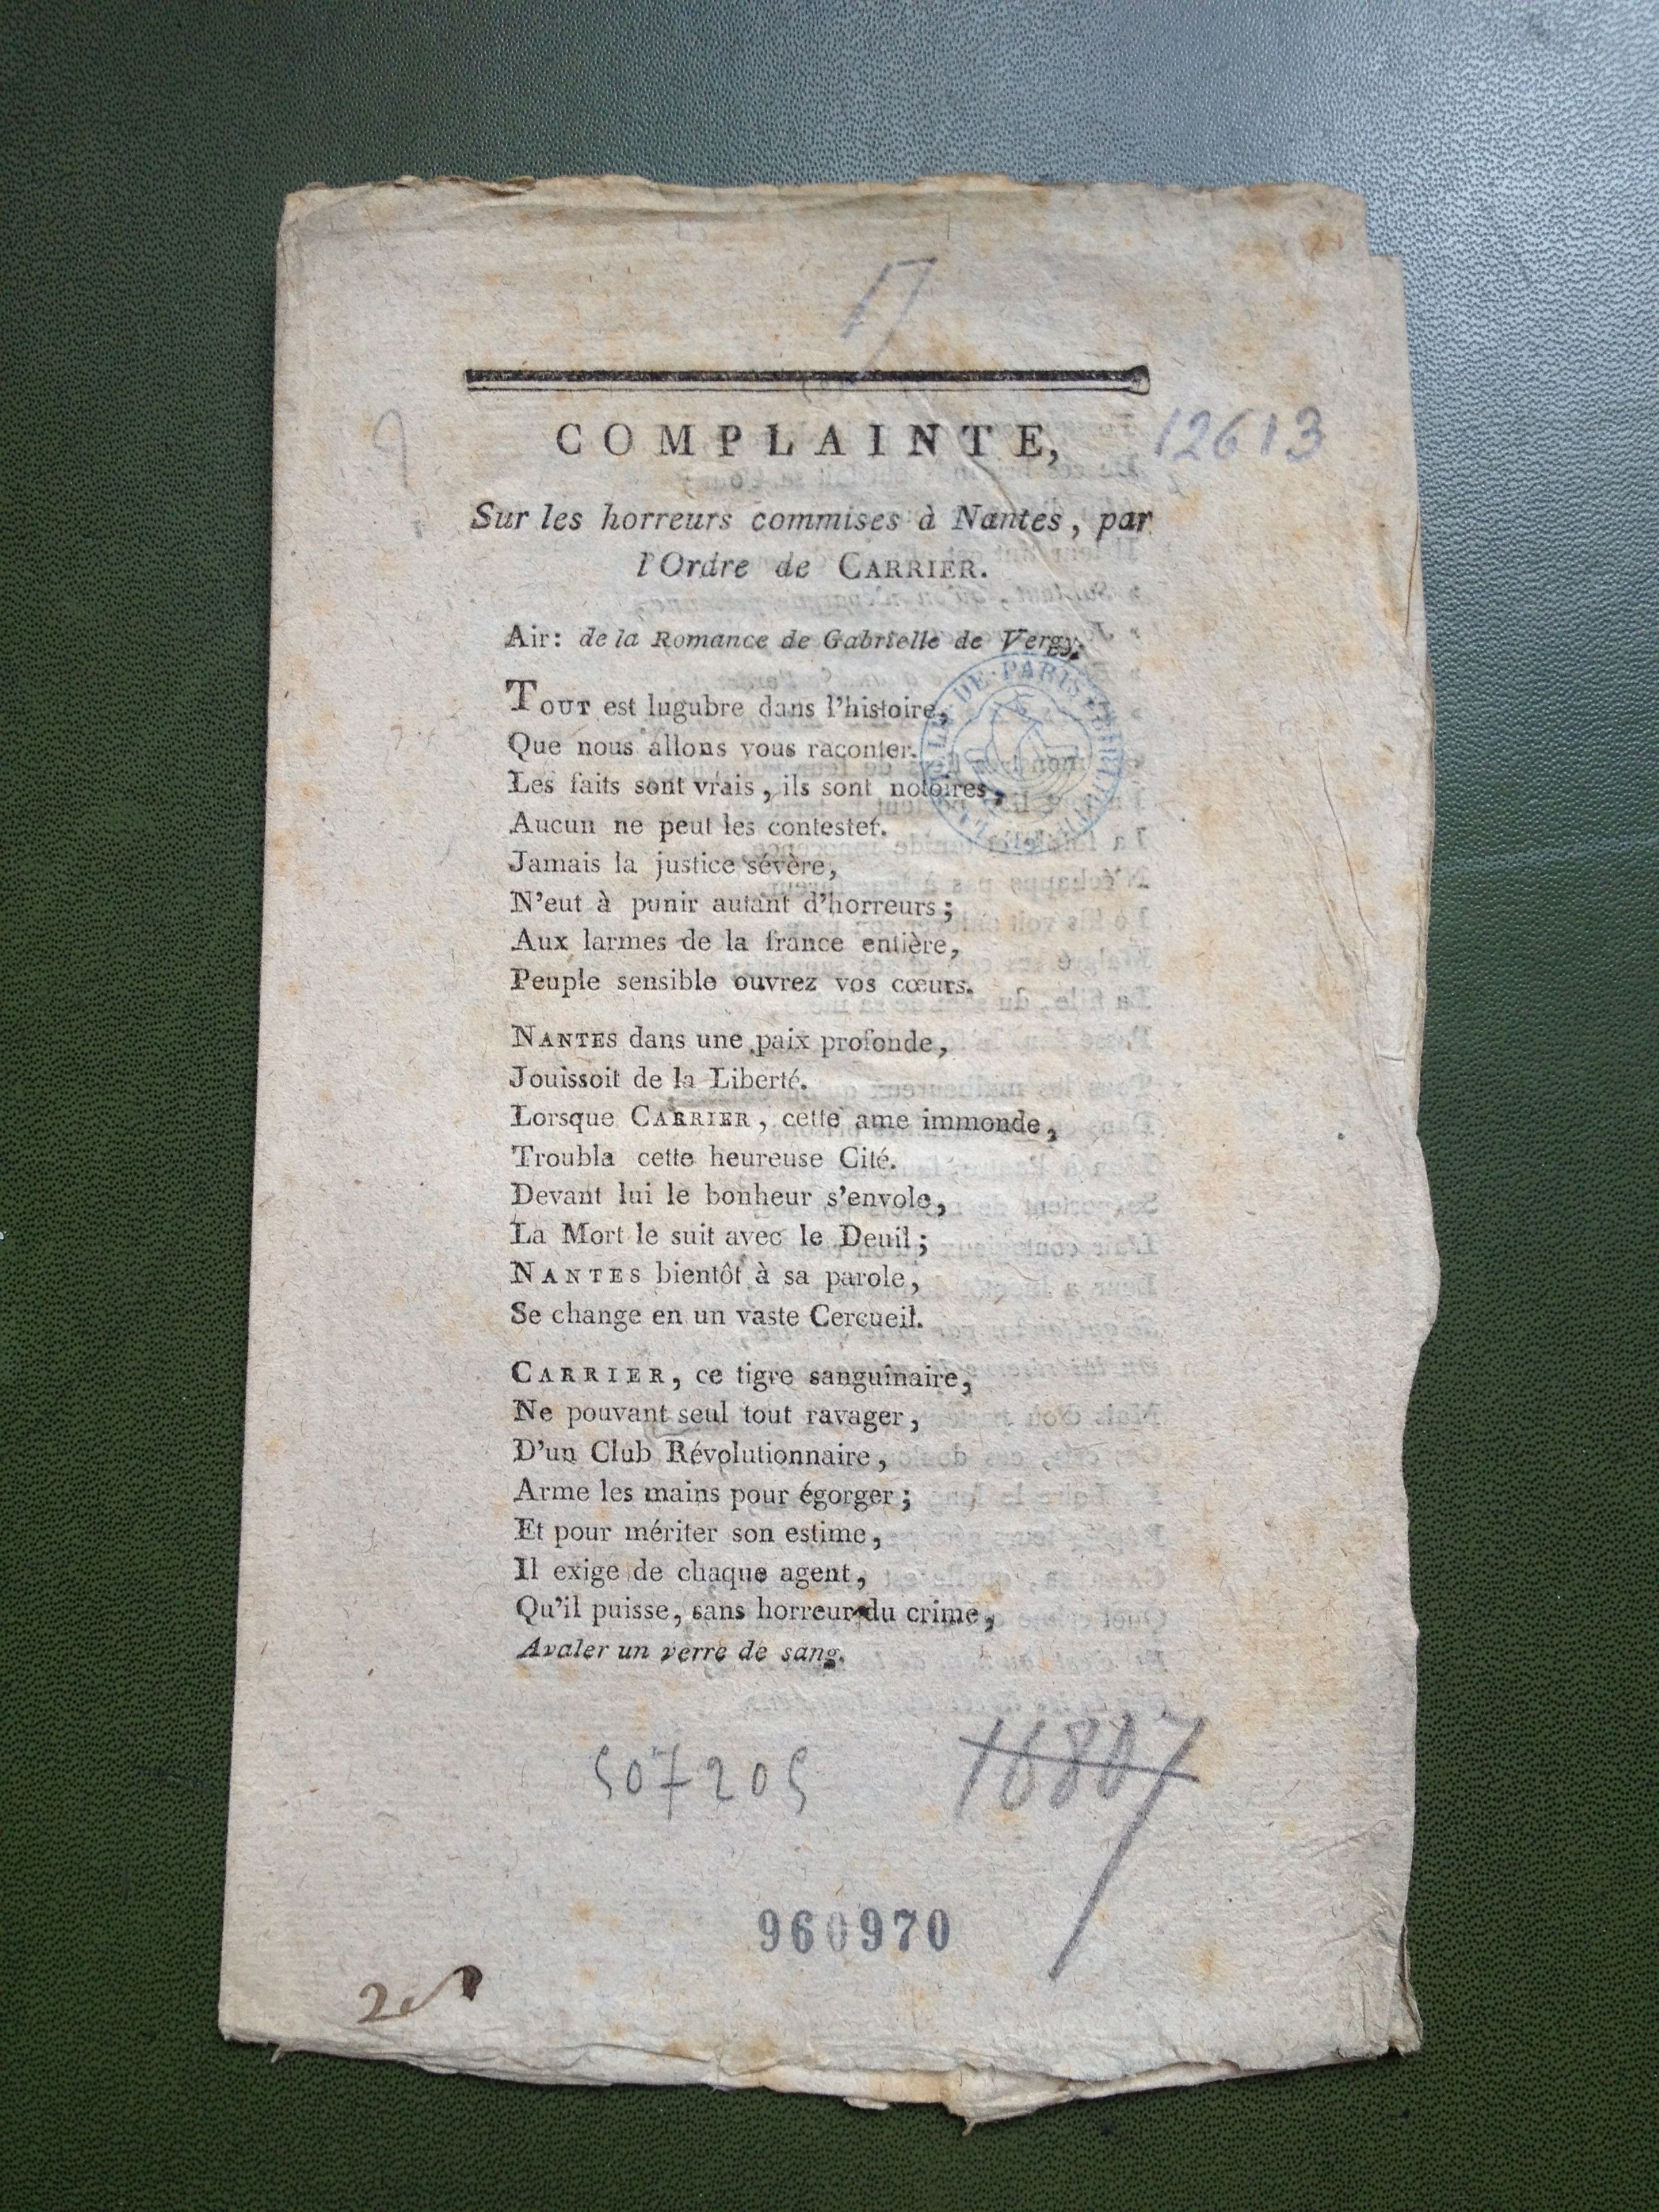 17
COMPLAINTE,
12613
Sur les horreurs commises à Nantes, par
l'Ordre de CARRIER.
Air: de la Romance de Gabrielle de Vergy.
DE PARIS
TOUT est lugubre dans l'histoire,
Que nous allons vous raconter.
Les faits sont vrais, ils sont notoires,
Aucun ne peut les contester.
Jamais la justice sévère,
N'eut à punir autant d'horreurs;
Aux larmes de la france entière,
Peuple sensible ouvrez vos cœurs.
NANTES dans une paix profonde,
Jouissoit de la Liberté.
Lorsque CARRIER, cette ame immonde,
Troubla cette heureuse Cité.
Devant lui le bonheur s'envole,
La Mort le suit avec le Deuil;
NANTES bientôt à sa parole,
Se change en un vaste Cercueil.
CARRIER, ce tigre sanguinaire,
Ne pouvant seul tout ravager,
D'un Club Révolutionnaire,
Arme les mains pour égorger;
Et pour mériter son estime,
Il exige de chaque agent,
Qu'il puisse, sans horreur du crime,
Avaler un verre de sang.
507205
16807
960970